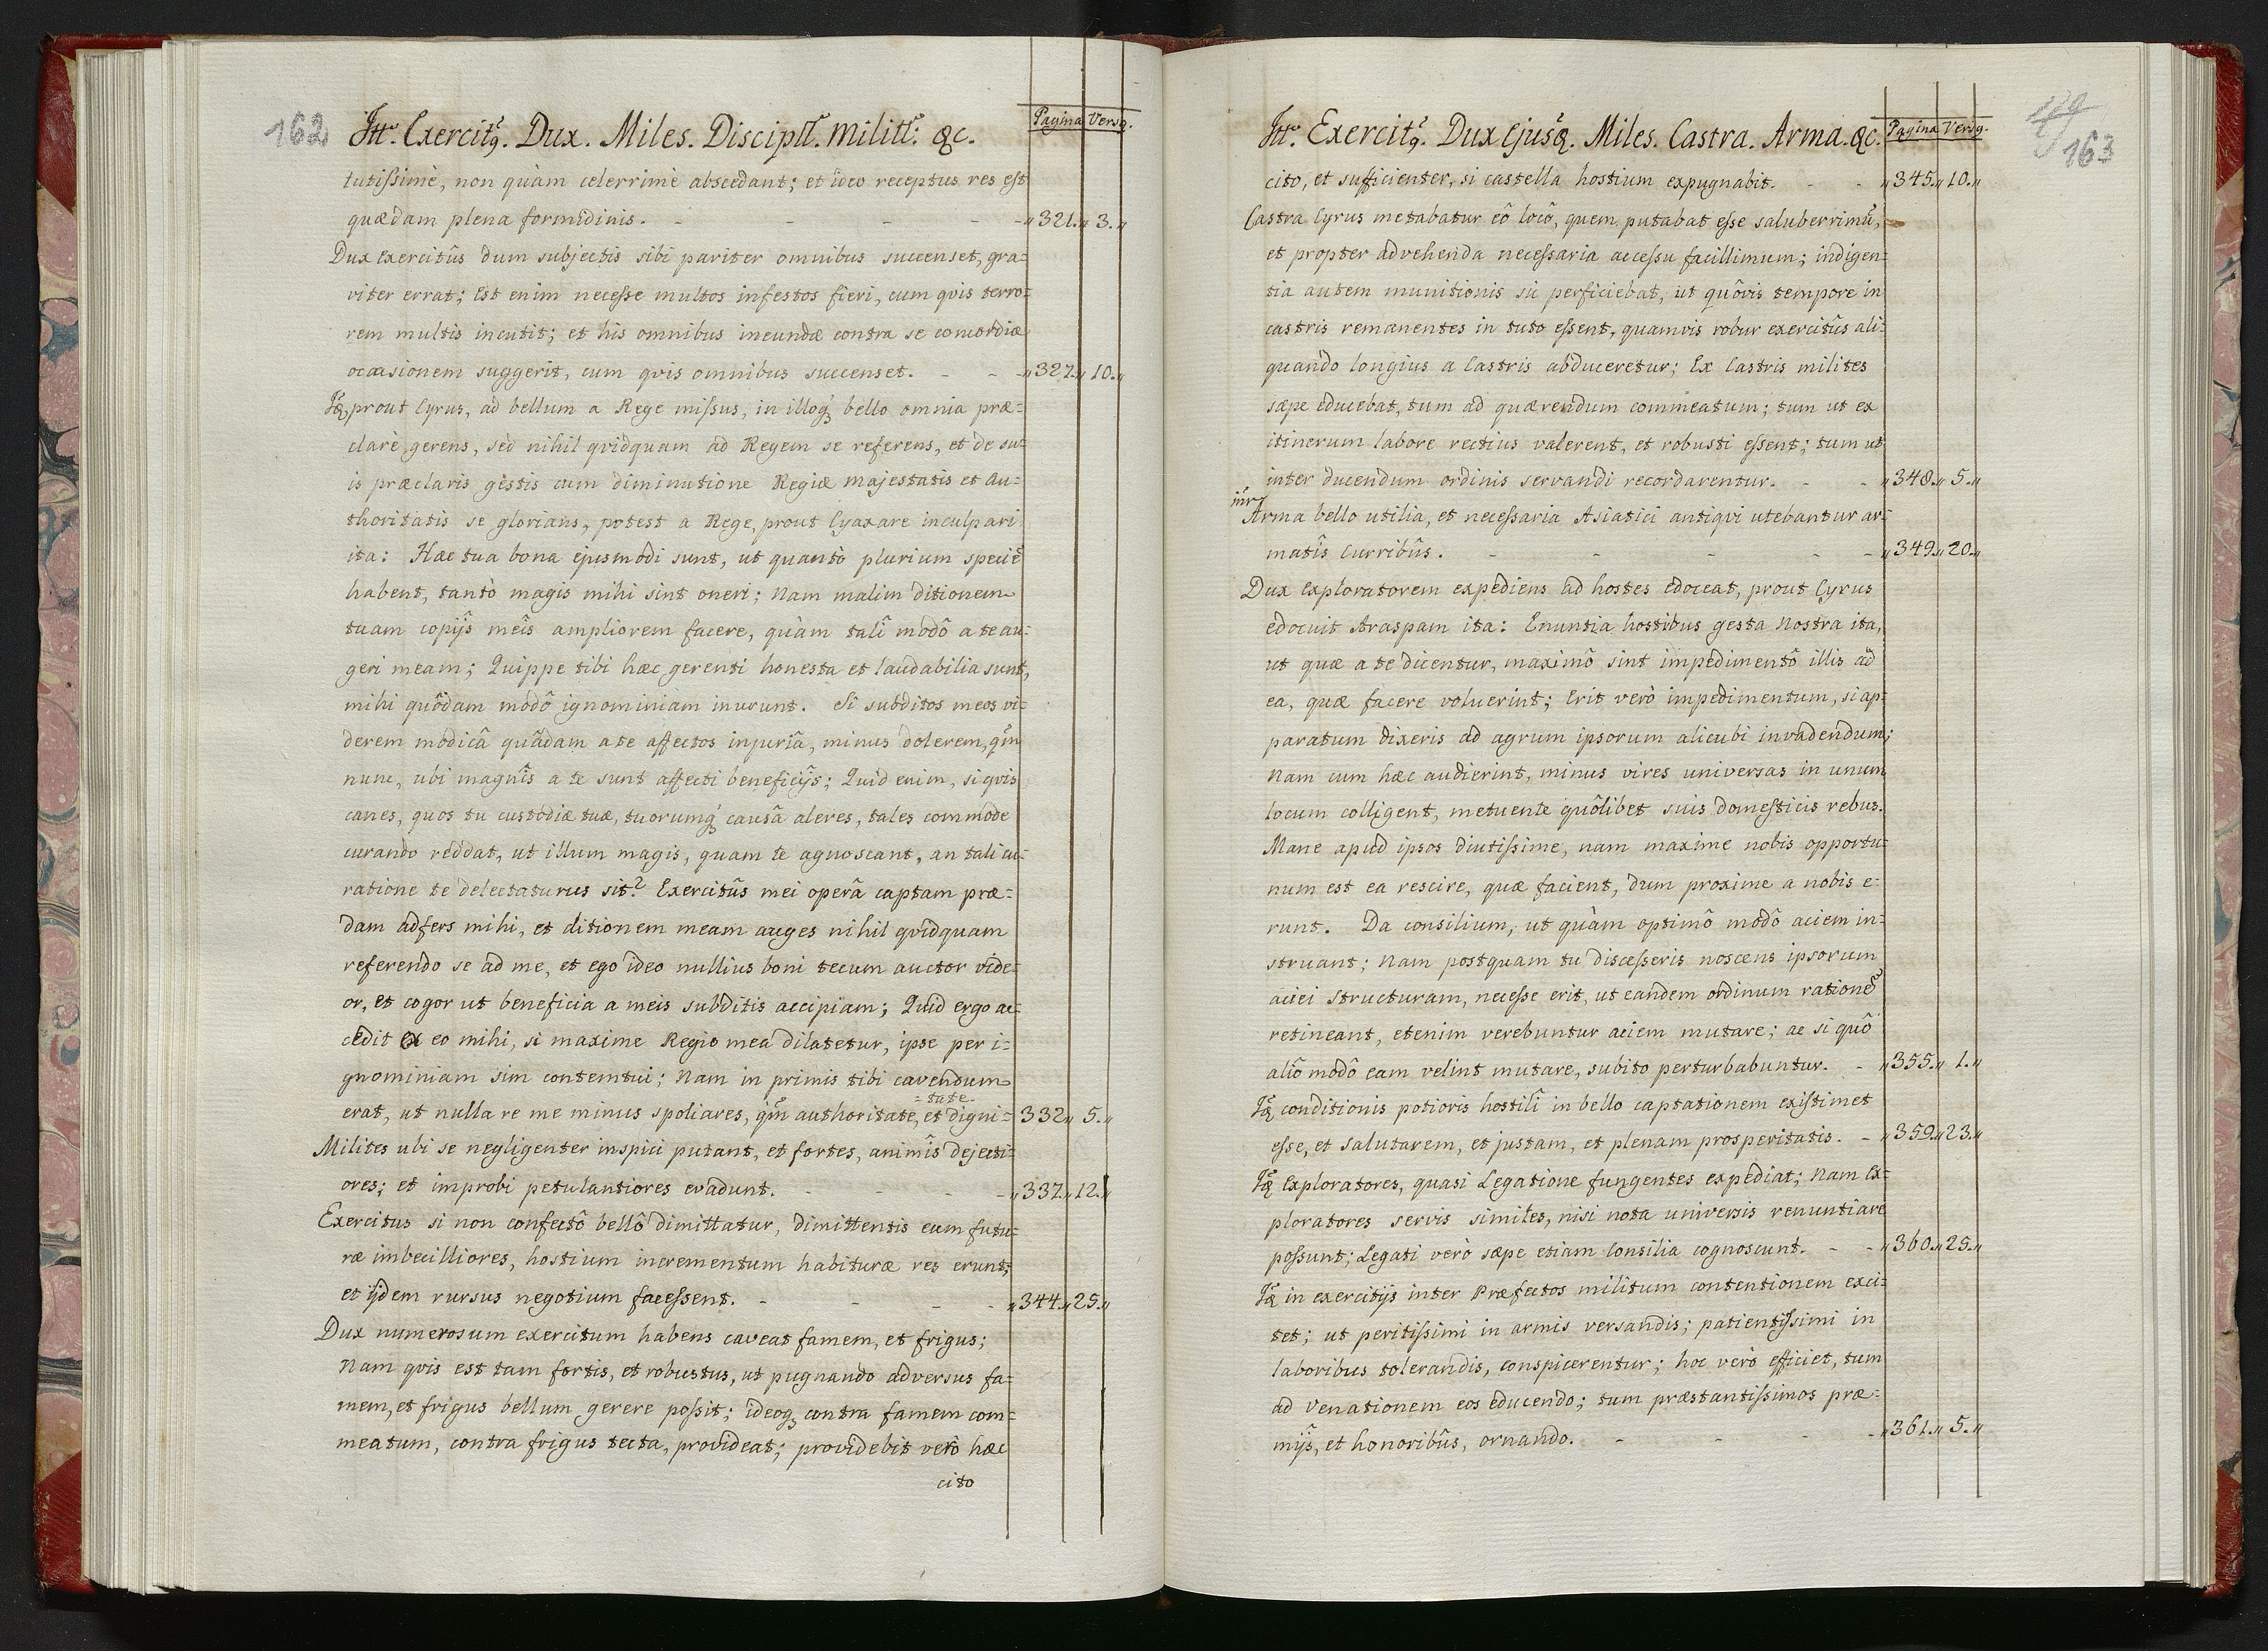 162 Itr. Exercitq. Dux. Miles. Discipll. militl: &c. Pagina Versq.
tutissimè, non quàm celerrimè abscedant; et ideo receptus res est
quædam plena formidinis. - - - - „321.„ 3.„
Dux exercitûs dum subjectis sibi pariter omnibus succenset, gra=
viter errat; Est enim necesse multos infestos fieri, cum qvis terro=
rem multis incutit; et his omnibus ineundæ contra se concordiæ
occasionem suggerit, cum qvis omnibus succenset. - - „327.„ 10.„
Iq, prout Cyrus, ad bellum a Rege missus, in illoq bello omnia præ=
clarè gerens, sed nihil qvidquam ad Regem se referens, et de su=
is præclaris gestis cum diminutione Regiæ majestatis et Au=
thoritatis se glorians, potest a Rege, prout Cyaxare inculpari
ita: Hæc tua bona ejusmodi sunt, ut quantò plurium speciẽ
habent, tantò magis mihi sint oneri; Nam malim ditionem
tuam copijs meis ampliorem facere, quàm talî modô a te au=
geri meam; Quippe tibi hæc gerenti honesta et laudabilia sunt,
mihi quôdam modô ignominiam inurunt. Si subditos meos vi=
derem modicâ quâdam a te affectos injuriâ, minus dolerem, qm
nunc, ubi magnîs a te sunt affecti beneficijs; Quid enim, si qvis
canes, quos tu custodiæ tuæ, tuorumq causâ aleres, tales commode
curando reddat, ut illum magis, quam te agnoscant, an tali cu=
ratione te delectaturus sit? Exercitûs mei operâ captam præ=
dam adfers mihi, et ditionem meam auges nihil qvidquam
referendo se ad me, et ego ideo nullius boni tecum auctor vide=
or, et cogor ut beneficia a meis subditis accipiam; Quid ergo ac=
cedit ex eo mihi, si maxime Regio mea dilatetur, ipse per i=
gnominiam sim contemtui; Nam in primis tibi cavendum
=tate.
erat, ut nulla re me minus spoliares, qm authoritate, et digni= 332„ 5.„
Milites ubi se negligenter inspici putant, et fortes, animis dejecti=
ores; et improbi petulantiores evadunt. - - - - „337.„ 12.„
Exercitus si non confectô bellô dimittatur, dimittentis eum futu=
ræ imbecilliores, hostium incrementum habituræ res erunt;
et ijdem rursus negotium facessent. - - - - „344.„ 25.„
Dux numerosum exercitum habens caveat famem, et frigus;
Nam qvis est tam fortis, et robustus, ut pugnando adversus fa=
mem, et frigus bellum gerere possit; ideoq contra famem com=
meatum, contra frigus tecta, provideat; providebit verò hæc
cito
Itr. Exercitq. Dux Ejusq. Miles. Castra. Arma. &c. Pagina Versq. 163
cito, et sufficienter, si castella hostium expugnabit. - - „345.„ 10.„
Castra Cyrus metabatur eô locô, quem putabat esse saluberrimũ,
et propter advehenda necessaria accessu facillimum; indigen=
tia autem munitionis sic perficiebat, ut quôvis tempore in
castris remanentes in tuto essent, quamvis robur exercitûs ali=
quando longius a Castris abduceretur; Ex Castris milites
sæpe educebat, tum ad quærendum commeatum; tum ut ex
itinerum labore rectius valerent, et robusti essent; tum ut
inter ducendum ordinis servandi recordarentur. - - „348.„ 5.„
inr
Arma bello utilia, et necessaria Asiatici antiqvi utebantur ar=
matîs Curribûs. - - - - - „349.„ 20.„
Dux Exploratorem expediens ad hostes edoceat, prout Cyrus
edocuit Araspam ita: Enuntia hostibus gesta nostra ita,
ut quæ a te dicentur, maximô sint impedimentô illis ad
ea, quæ facere voluerint; Erit verò impedimentum, si ap=
paratum dixeris ad agrum ipsorum alicubi invadendum;
Nam cum hæc audierint, minus vires universas in unum
locum colligent, metuente quôlibet suis domesticis rebus.
Mane apud ipsos diutissime, nam maxime nobis opportu=
num est ea rescire, quæ facient, dum proxime a nobis e=
runt. Da consilium, ut quàm optimô modô aciem in=
struant; Nam postquam tu discesseris noscens ipsorum
aciei structuram, necesse erit, ut eandem ordinum rationẽ
retineant, etenim verebuntur aciem mutare; ac si quô
aliô modô eam velint mutare, subito perturbabuntur. - „355.„ 1.„
Iq conditionis potioris hostilî in bello captationem existimet
esse, et salutarem, et justam, et plenam prosperitatis. - „359.„ 23.„
Iq Exploratores, quasi Legatione fungentes expediat; Nam Ex=
ploratores servis similes, nisi nota universis renuntiare
possunt; Legati verò sæpe etiam Consilia cognoscunt. - - „360.„ 25.„
Iq in exercitijs inter Præfectos militum contentionem exci=
tet; ut peritissimi in armis versandis; patientissimi in
laboribus tolerandis, conspicerentur; hoc verò efficiet, tum
ad venationem eos educendo; tum præstantissimos præ=
mijs, et honoribûs, ornando. - - - - „361.„ 5.„